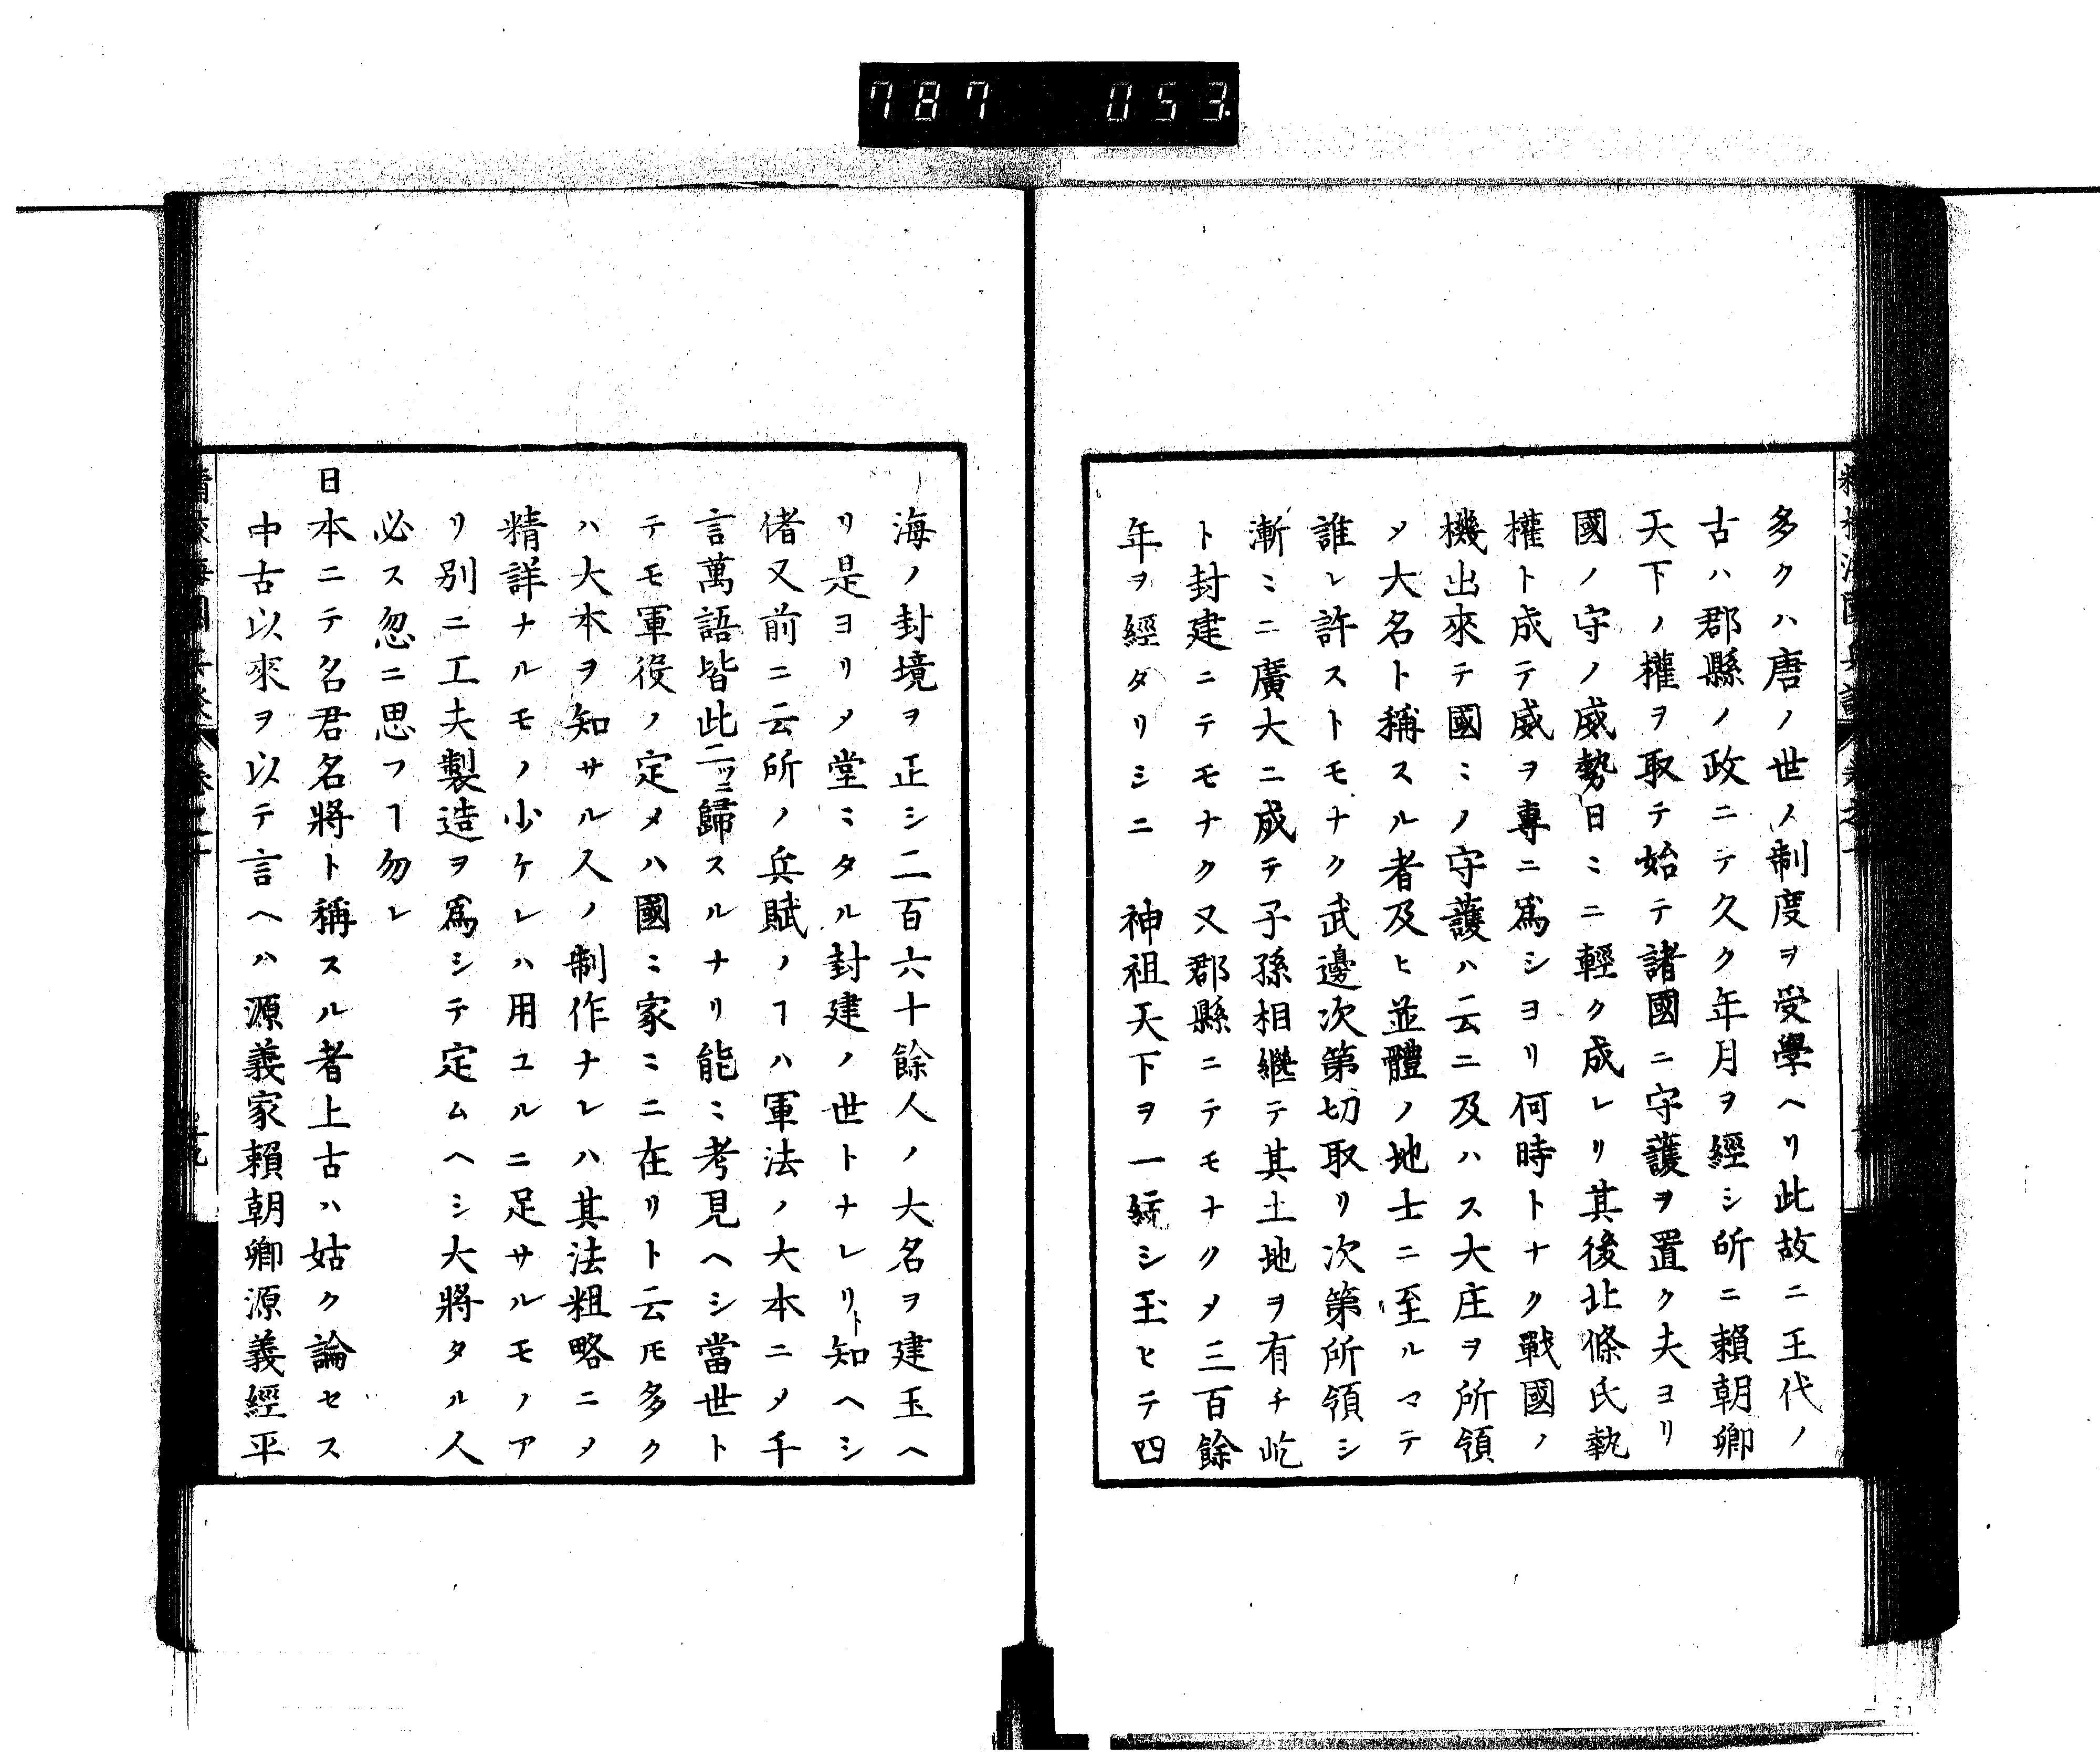 787 053
多クハ唐ノ世ノ制度ヲ受學ヘリ此故ニ王代ノ
古ハ郡縣ノ政ニテ久ク年月ヲ經シ所ニ賴朝卿
天下ノ權ヲ取テ始テ諸國ニ守護ヲ置ク夫ヨリ
國ノ守ノ威勢日ミニ輕ク成レリ其後北條氏執
權ト成テ威ヲ專ニ爲シヨリ何時トナク戰國ノ
機出來テ國ミノ守護ハ云ニ及ハス大庄ヲ所領
メ大名ト稱スル者及ヒ並體ノ地士ニ至ルマテ
誰レ許ストモナク武邊次第切取リ次第所領シ
漸ミニ廣大ニ成テ子孫相繼テ其土地ヲ有チ屹
ト封建ニテモナク又郡縣ニテモナクメ三百餘
年ヲ經タリシニ 神祖天下ヲ一統シ玉ヒテ四
海ノ封境ヲ正シ二百六十餘人ノ大名ヲ建玉ヘ
リ是ヨリメ堂ミタル封建ノ世トナレリト知ヘシ
偖又前ニ云所ノ兵賦ノヿハ軍法ノ大本ニメ千
言萬語皆此二ツニ歸スルナリ能ミ考見ヘシ當世ト
テモ軍役ノ定メハ國ミ家ミニ在リト云𪜈多ク
ハ大本ヲ知サル人ノ制作ナレハ其法粗略ニメ
精詳ナルモノ少ケレハ用ユルニ足サルモノア
リ別ニ工夫製造ヲ爲シテ定ムヘシ大將タル人
必ス忽ニ思フヿ勿レ
日本ニテ名君名將ト稱スル者上古ハ姑ク論セス
中古以來ヲ以テ言ヘハ源義家賴朝卿源義經平